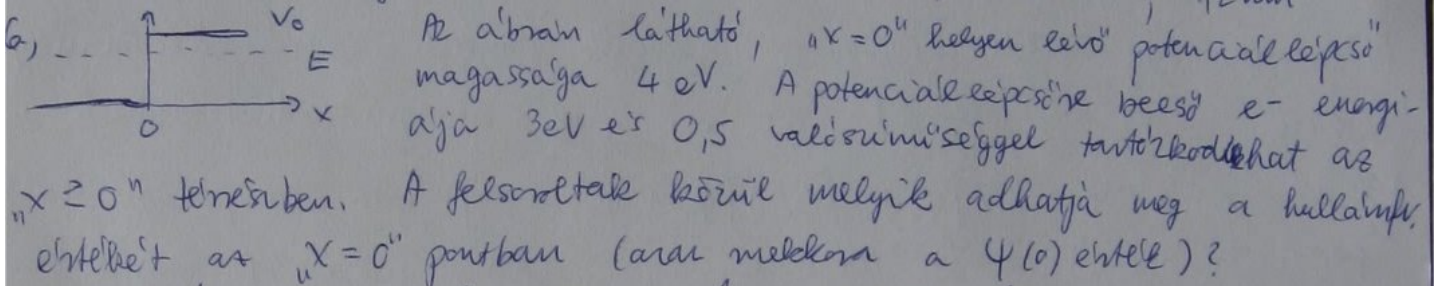 6,) V₀ Az ábrán látható, „x=0" helyen lévő potenciállépcső
E magassága 4 eV. A potenciállépcsőre beeső e- energi-
x ája 3eV és 0,5 valószínűséggel tartózkodhat az
0
„x ≥ 0" térrészben. A felsoroltak közül melyik adhatja meg a hullámfv.
értékét az „x=0" pontban (azaz mekkora a Ψ(0) érték)?